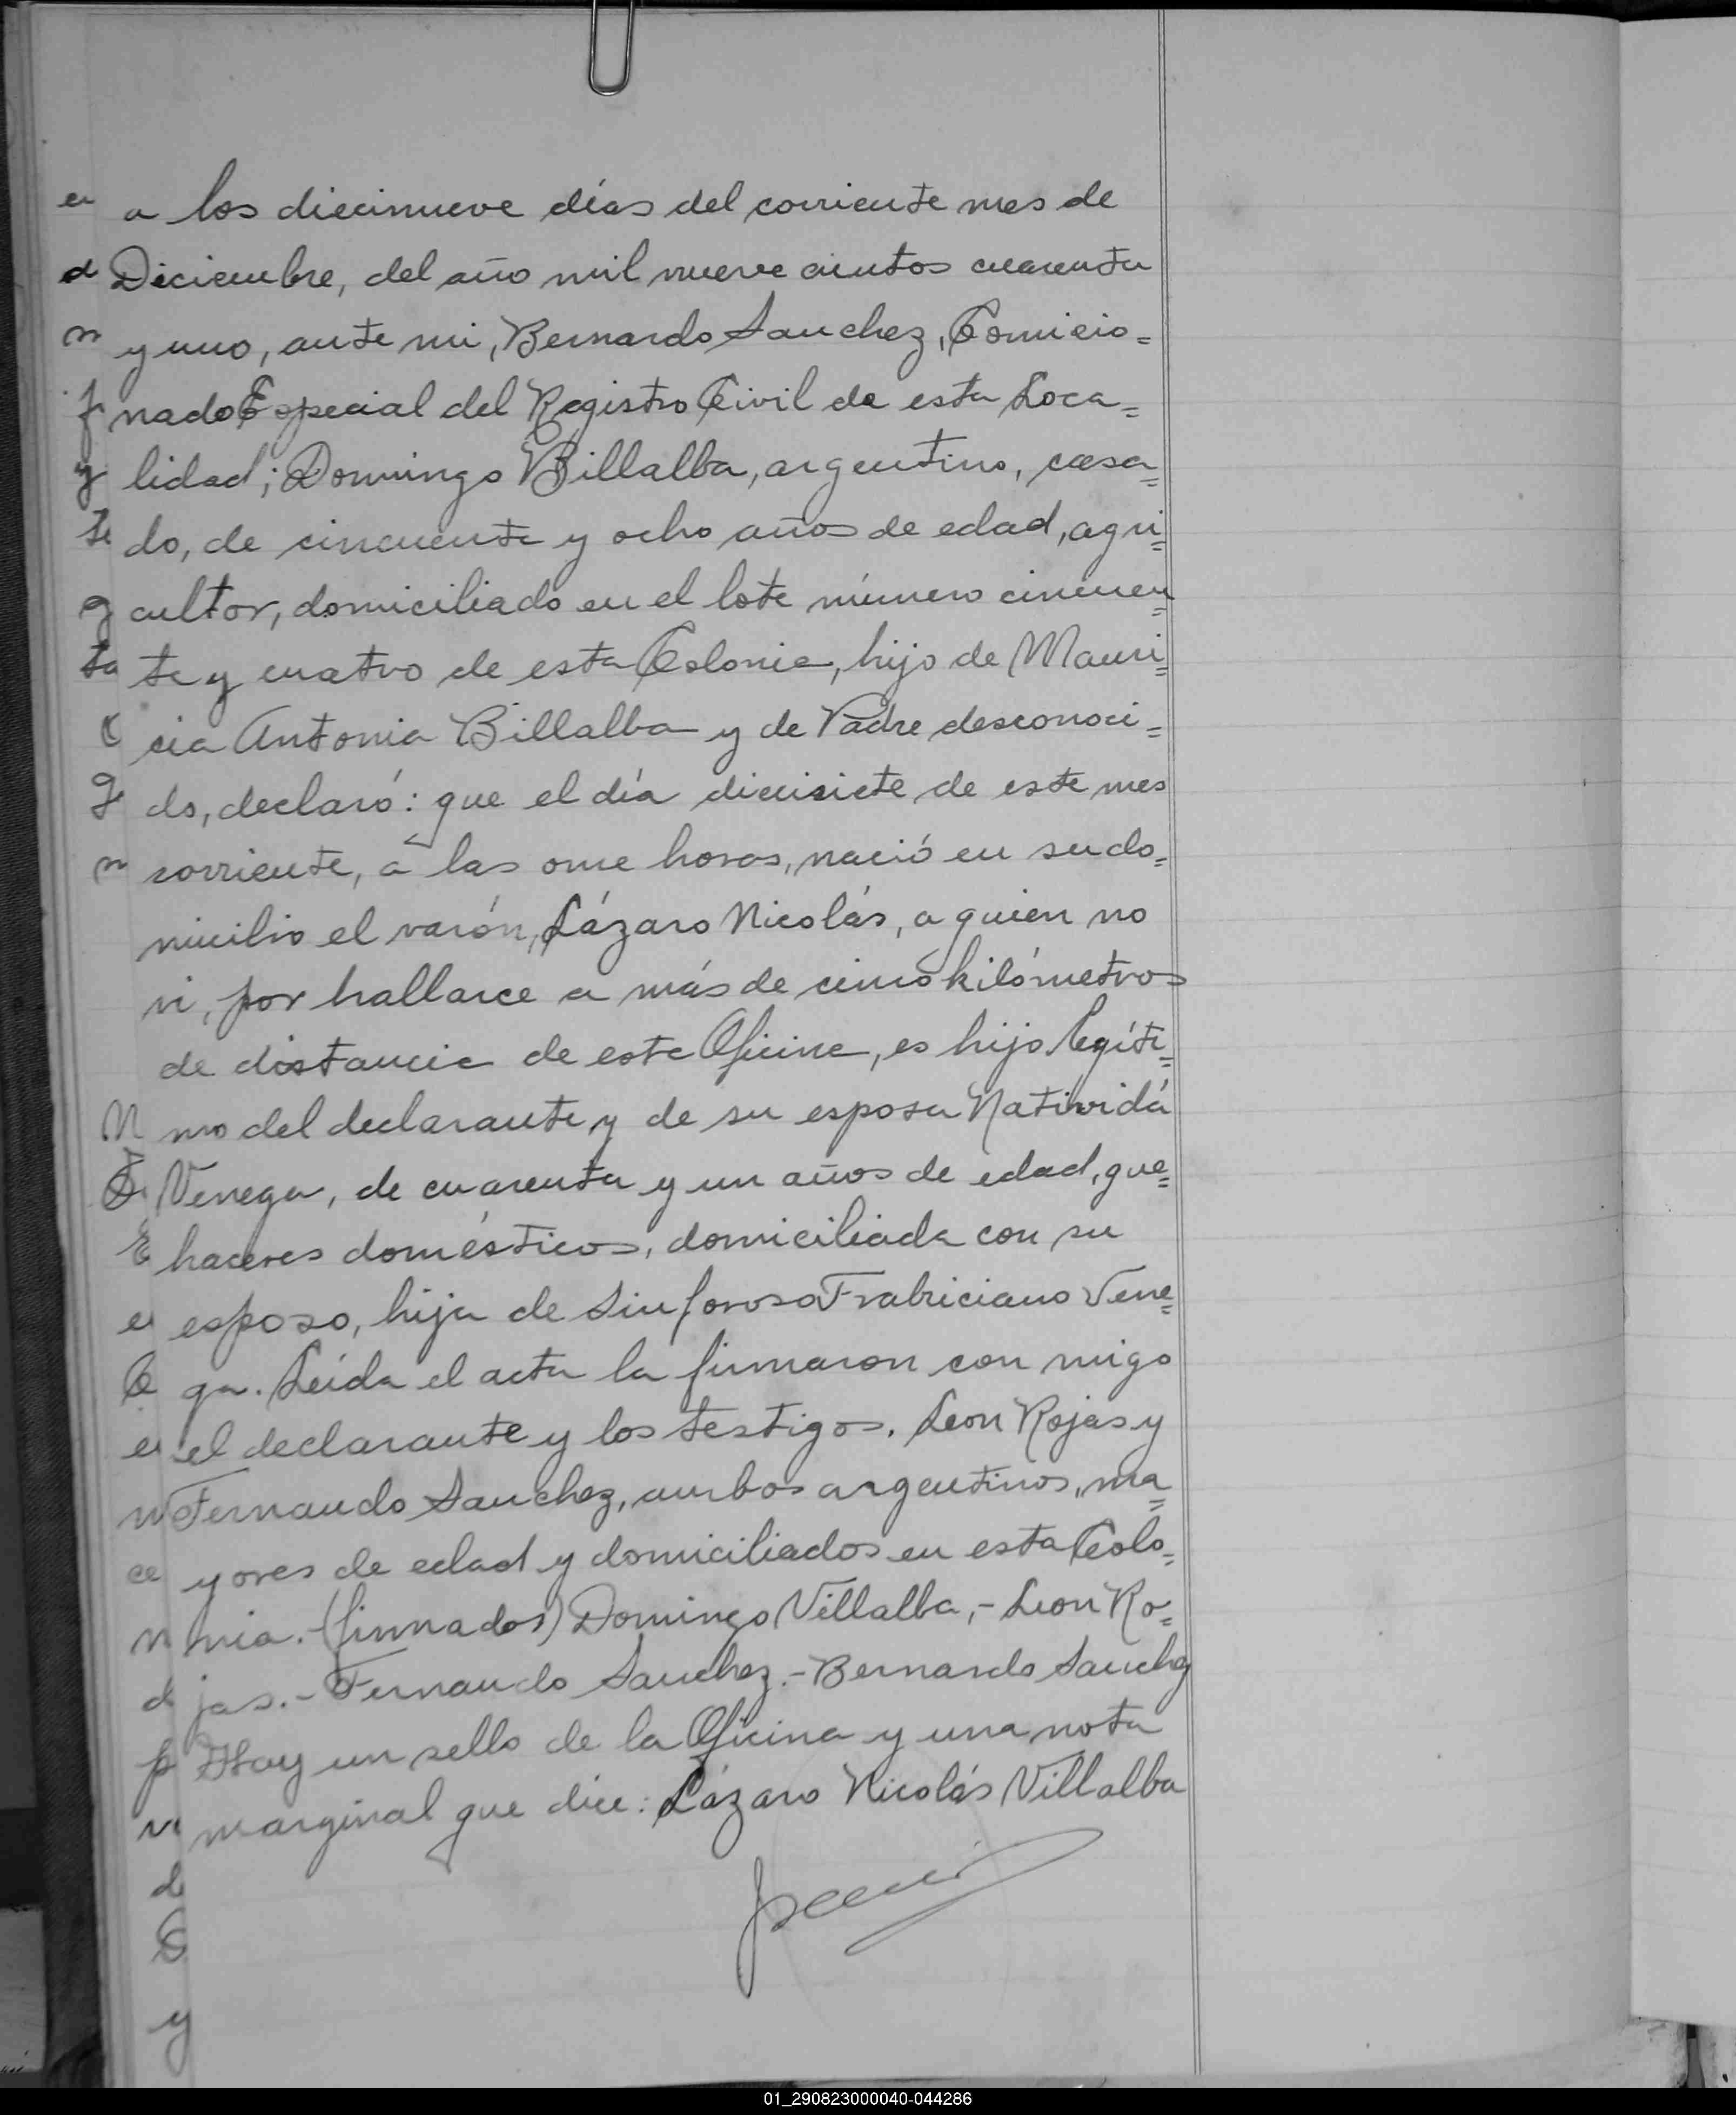 a los diecinueve días del corriente mes de
Diciembre, del año mil nueve cientos cuarenta
y uno, ante mi, Bernardo Sanchez, Comicio=
nado Especial del Registro Civil de esta Loca=
lidad; Domingo Billalba, argentino, casa=
do, de cincuenta y ocho años de edad, agri=
cultor, domiciliado en el lote número cincuen=
ta y cuatro de esta Colonia, hijo de Mauri=
cia Antonia Billalba y de Padre desconoci=
do, declaró: que el día diecisiete de este mes
corriente, a las once horas, nació en su do=
micilio el varón, Lázaro Nicolás, a quien no
vi, por hallarce a más de cinco kilómetros
de distancia de esta Oficina, es hijo legíti=
mo del declarante y de su esposa Natividá
Venega, de cuarenta y un años de edad, que=
haceres domésticos, domiciliada con su
esposo, hija de Sinforosa Frabriciano Vene=
ga. Leida el acta la firmaron con migo
el declarante y los testigos, Leon Rojas y
Fernando Sanchez, ambos argentinos, ma=
yores de edad y domiciliados en esta Colo=
nia.-(firmados) Domingo Villalba,- Leon Ro=
jas.- Fernando Sanchez.- Bernardo Sanchez
Hay un sello de la Oficina y una nota
marginal que dice: Lázaro Nicolás Villalba
01_290823000040-044286